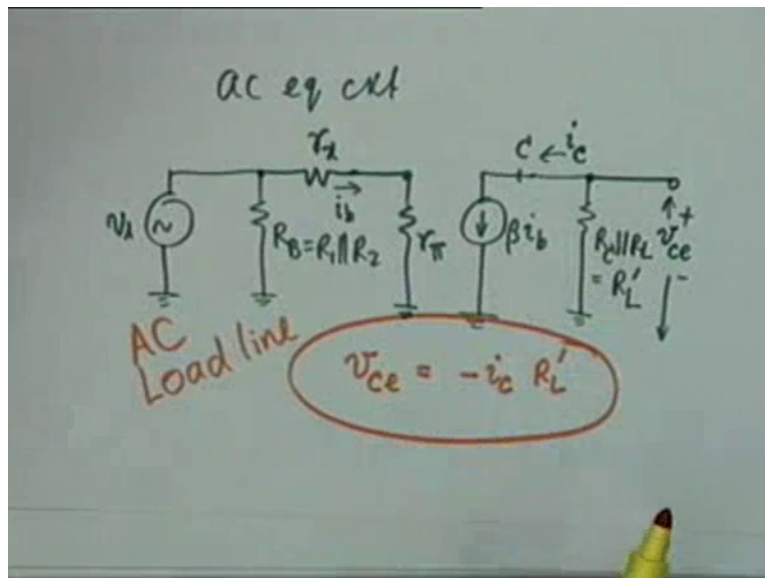 ac eq ckt
r_x
C ← i_c
v_s
~
i_b
R_B = R_1 || R_2
r_π
β i_b
R_C || R_L
= R_L'
+
v_ce
-
AC
Load line
v_ce = - i_c R_L'